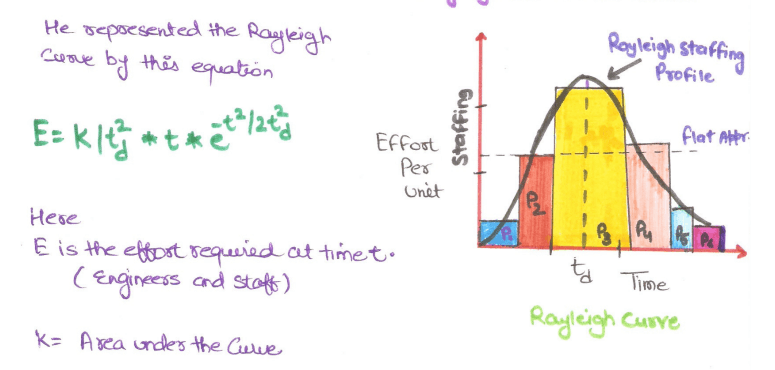 He represented the Rayleigh
Curve by this equation
E= K/t²d * t * e^-t²/2t²d
Here
E is the effort required at time t.
(Engineers and staff)
K= Area under the Curve
Rayleigh Staffing
Profile
Staffing
Effort
Per
Unit
flat Appr.
P1
P2
P3
P4
P5
P6
td
Time
Rayleigh Curve